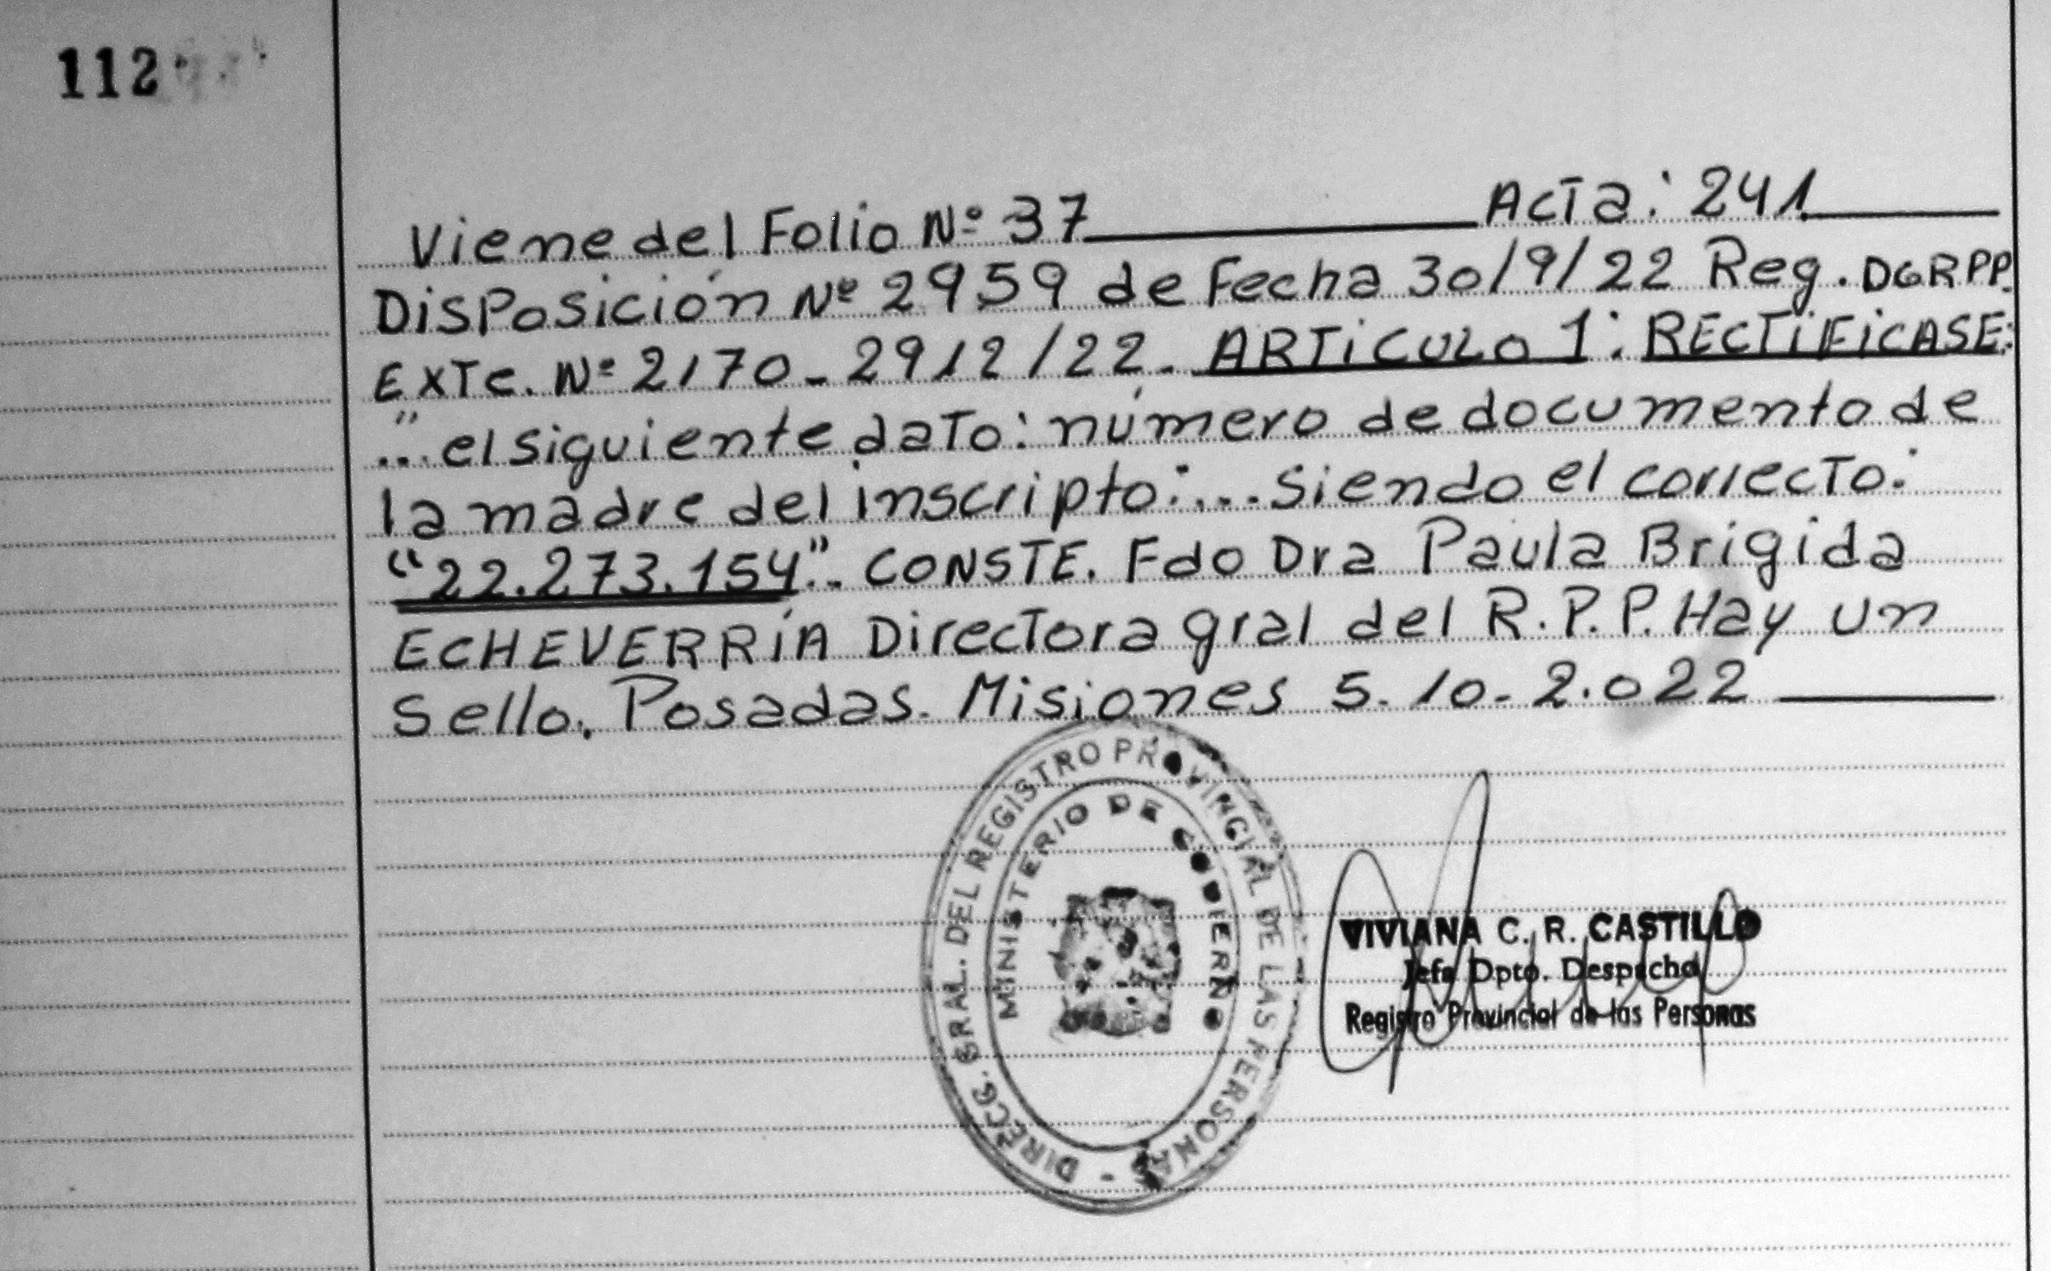 112
Viene del Folio Nº 37 Acta: 241
Disposición Nº 2959 de Fecha 30/9/22 Reg. DGRPP.
Exte. Nº 2170-2912/22. ARTiCULO 1: RECTiFiCASE:
"...el siguiente dato: número de documento de
la madre del inscripto:... siendo el correcto:
"22.273.154". CONSTE. Fdo Dra Paula Brigida
ECHEVERRíA Directora gral del R.P.P. Hay un
Sello. Posadas. Misiones 5-10-2.022
DIRECC. GRAL. DEL REGISTRO PROVINCIAL DE LAS PERSONAS -
MINISTERIO DE GOBIERNO
VIVIANA C. R. CASTILLO
Jefa Dpto. Despacho
Registro Provincial de las Personas